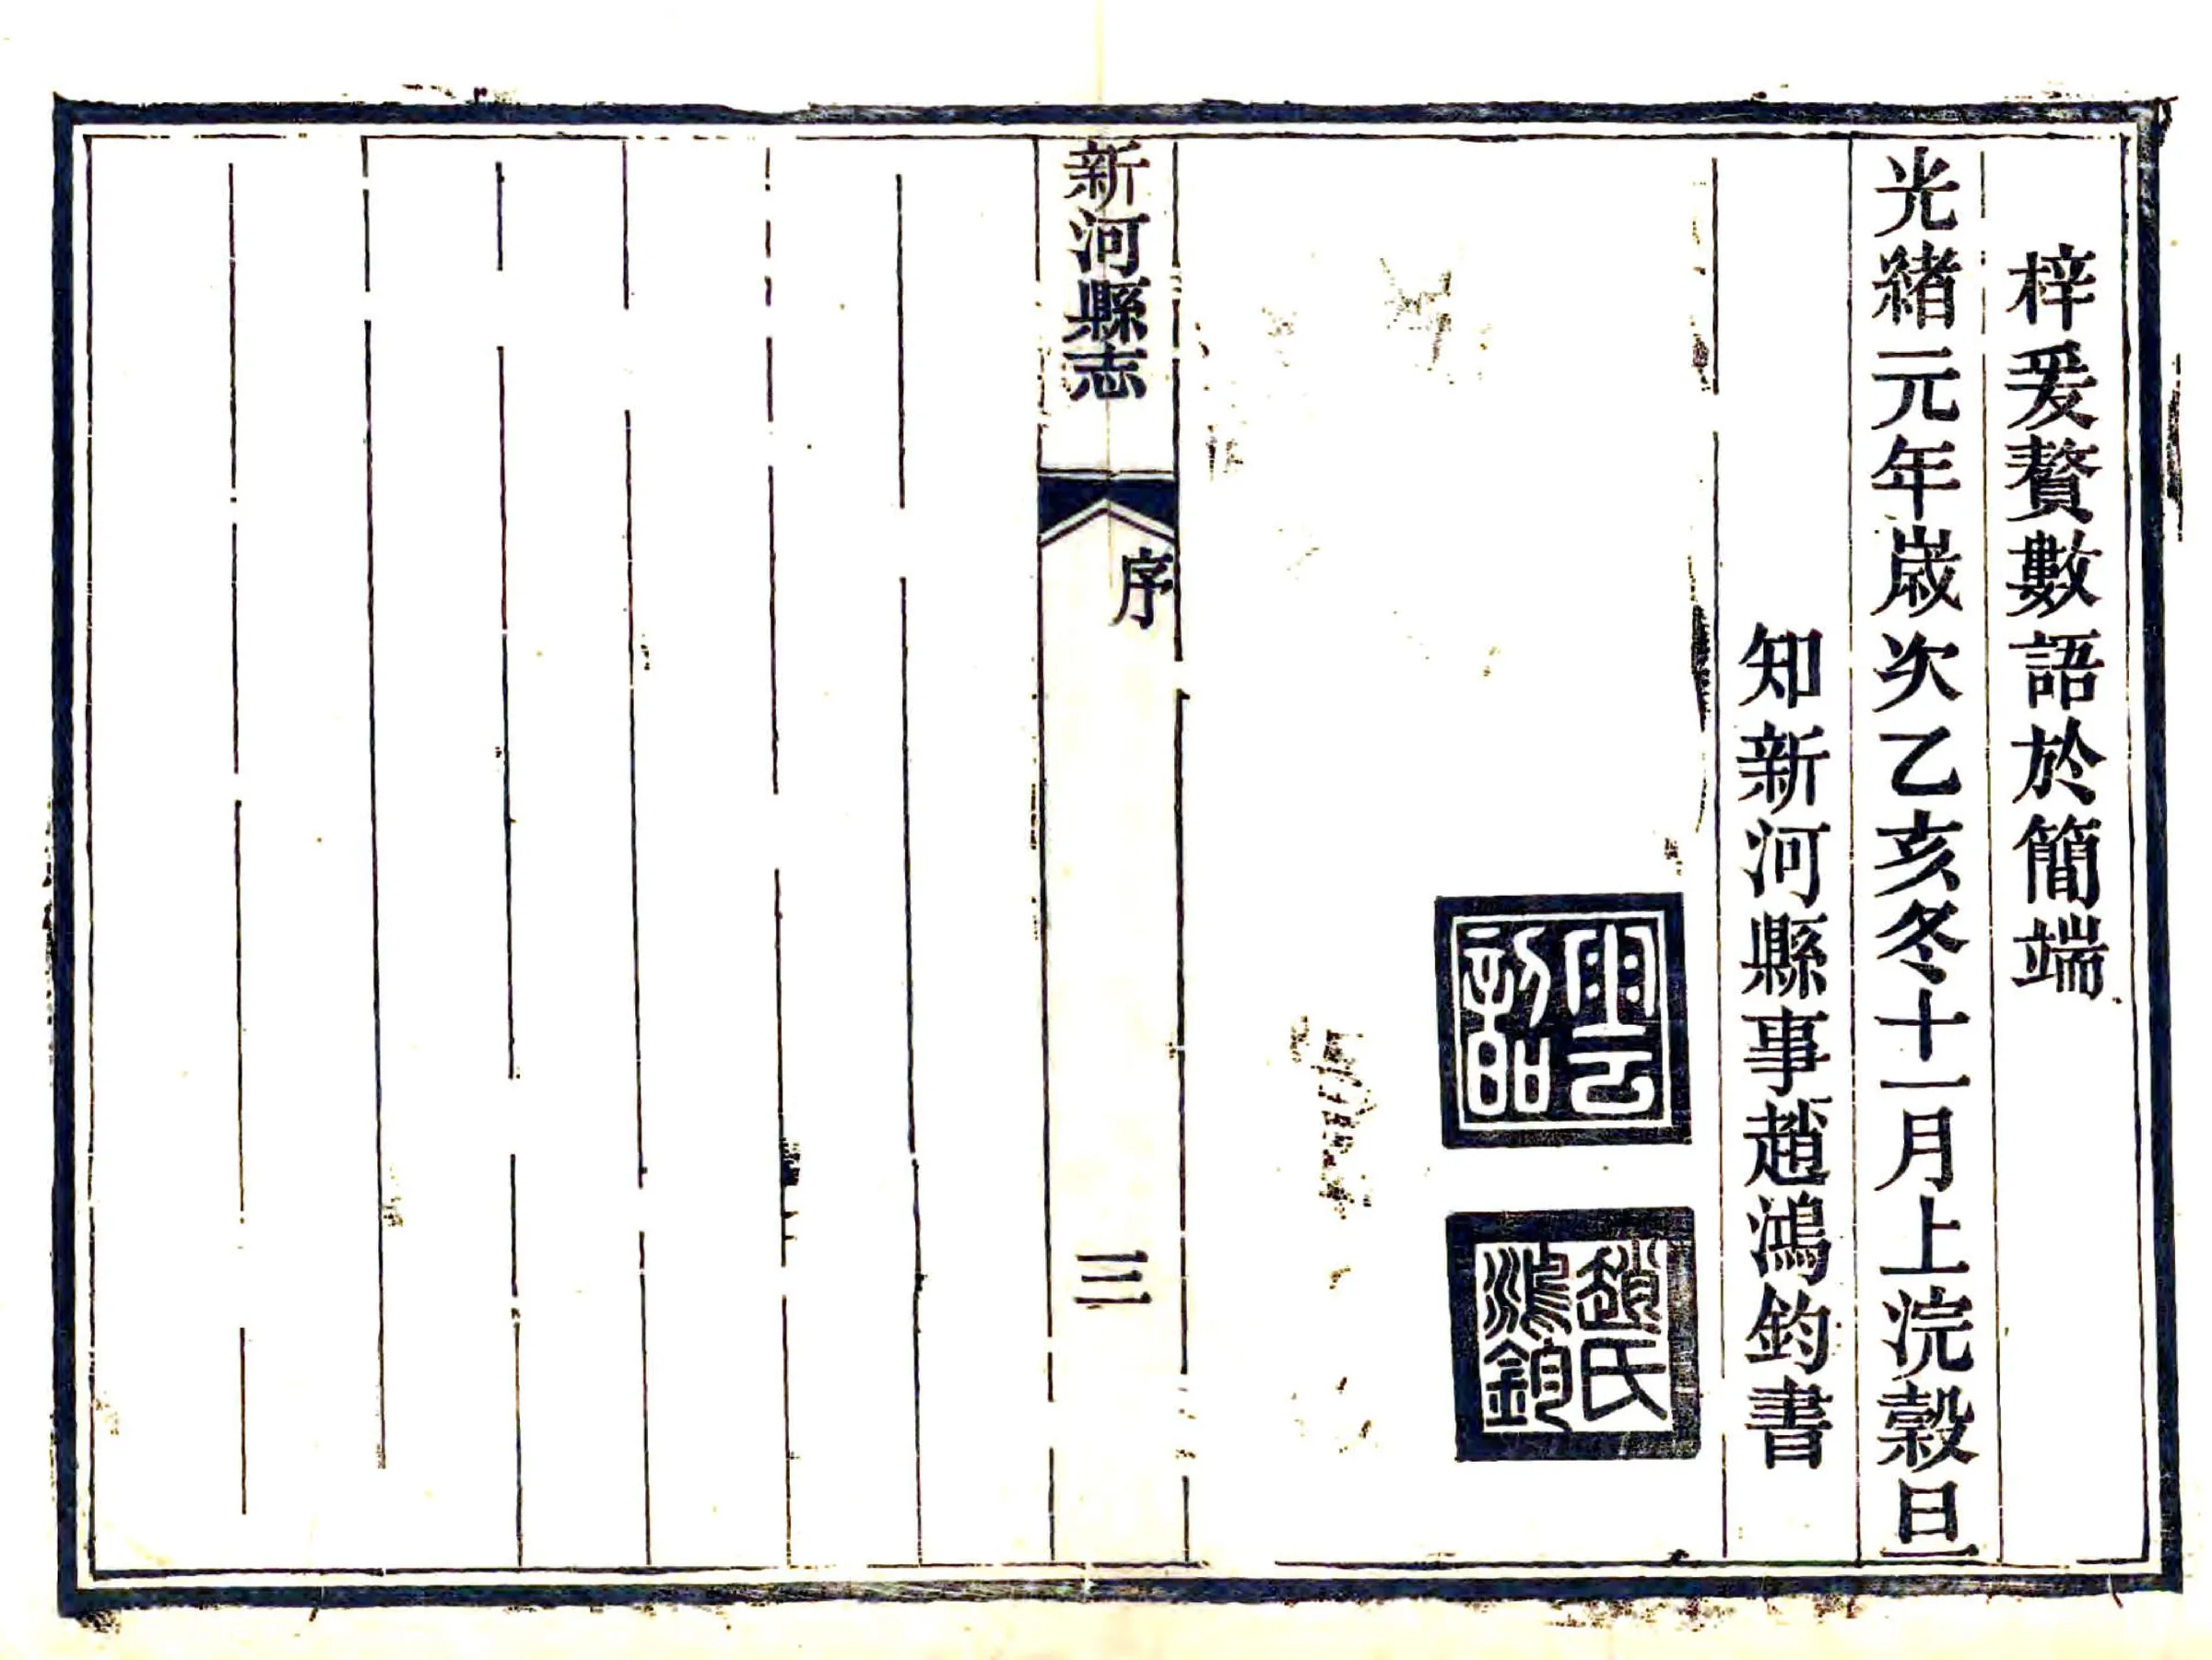 梓爰贅數語於簡端
光緒元年歲次乙亥冬十一月上浣穀旦
知新河縣事趙鴻鈞書
趙氏
鴻鈞
新河縣志
序
三